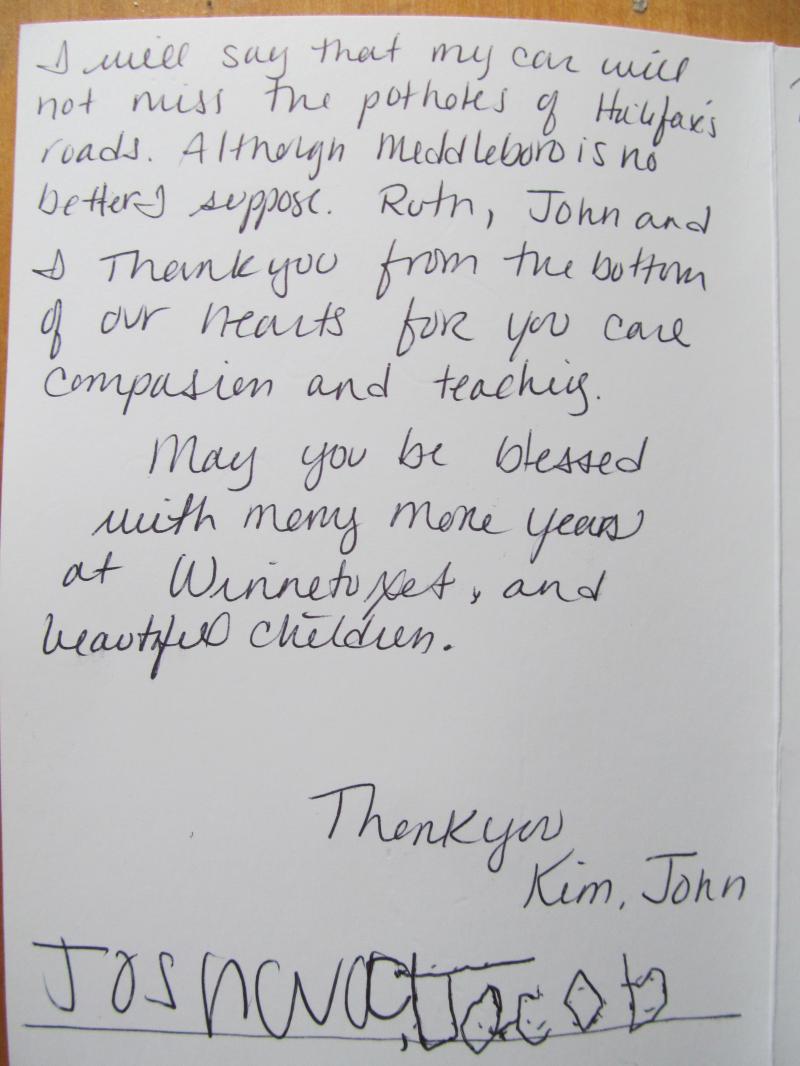 I will say that my car will
not miss the potholes of Halifax's
roads. Although Meddleboro is no
better I suppose. Ruth, John and
I Thank you from the bottom
of our hearts for you care
compasion and teaching.
May you be blessed
with many more years
at Winnetuxet, and
beautiful children.
Thank you
Kim, John
Joshua, Jacob